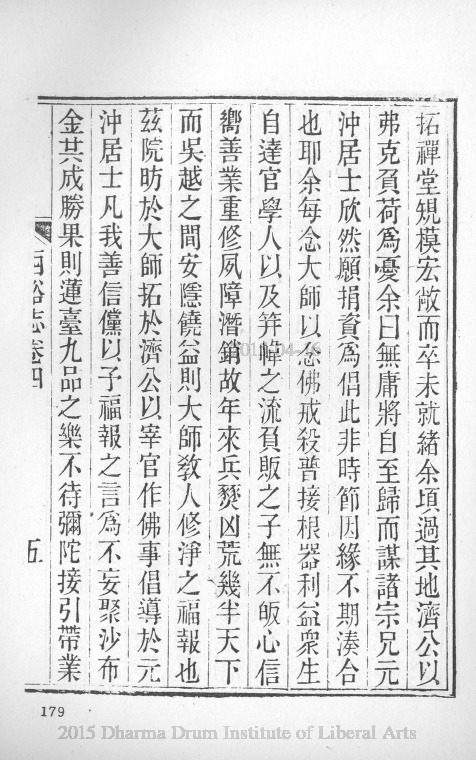 拓禪堂䂓模宏敞而卒未就緒余頃過其地濟公以
弗克負荷爲憂余曰無庸將自至歸而謀諸宗兄元
沖居士欣然願捐資爲倡此非時節因緣不期湊合
也耶余每念大師以念佛戒殺普接根器利益衆生
自達官學人以及笄幃之流負販之子無不皈心信
嚮善業重修夙障潛銷故年來兵燹凶荒幾半天下
而吳越之間安隱饒益則大師敎人修淨之福報也
茲院昉於大師拓於濟公以宰官作佛事倡導於元
沖居士凡我善信儻以予福報之言爲不妄聚沙布
金共成勝果則蓮臺九品之樂不待彌陀接引帶業
西谿志卷四
五
179
2015 Dharma Drum Institute of Liberal Arts